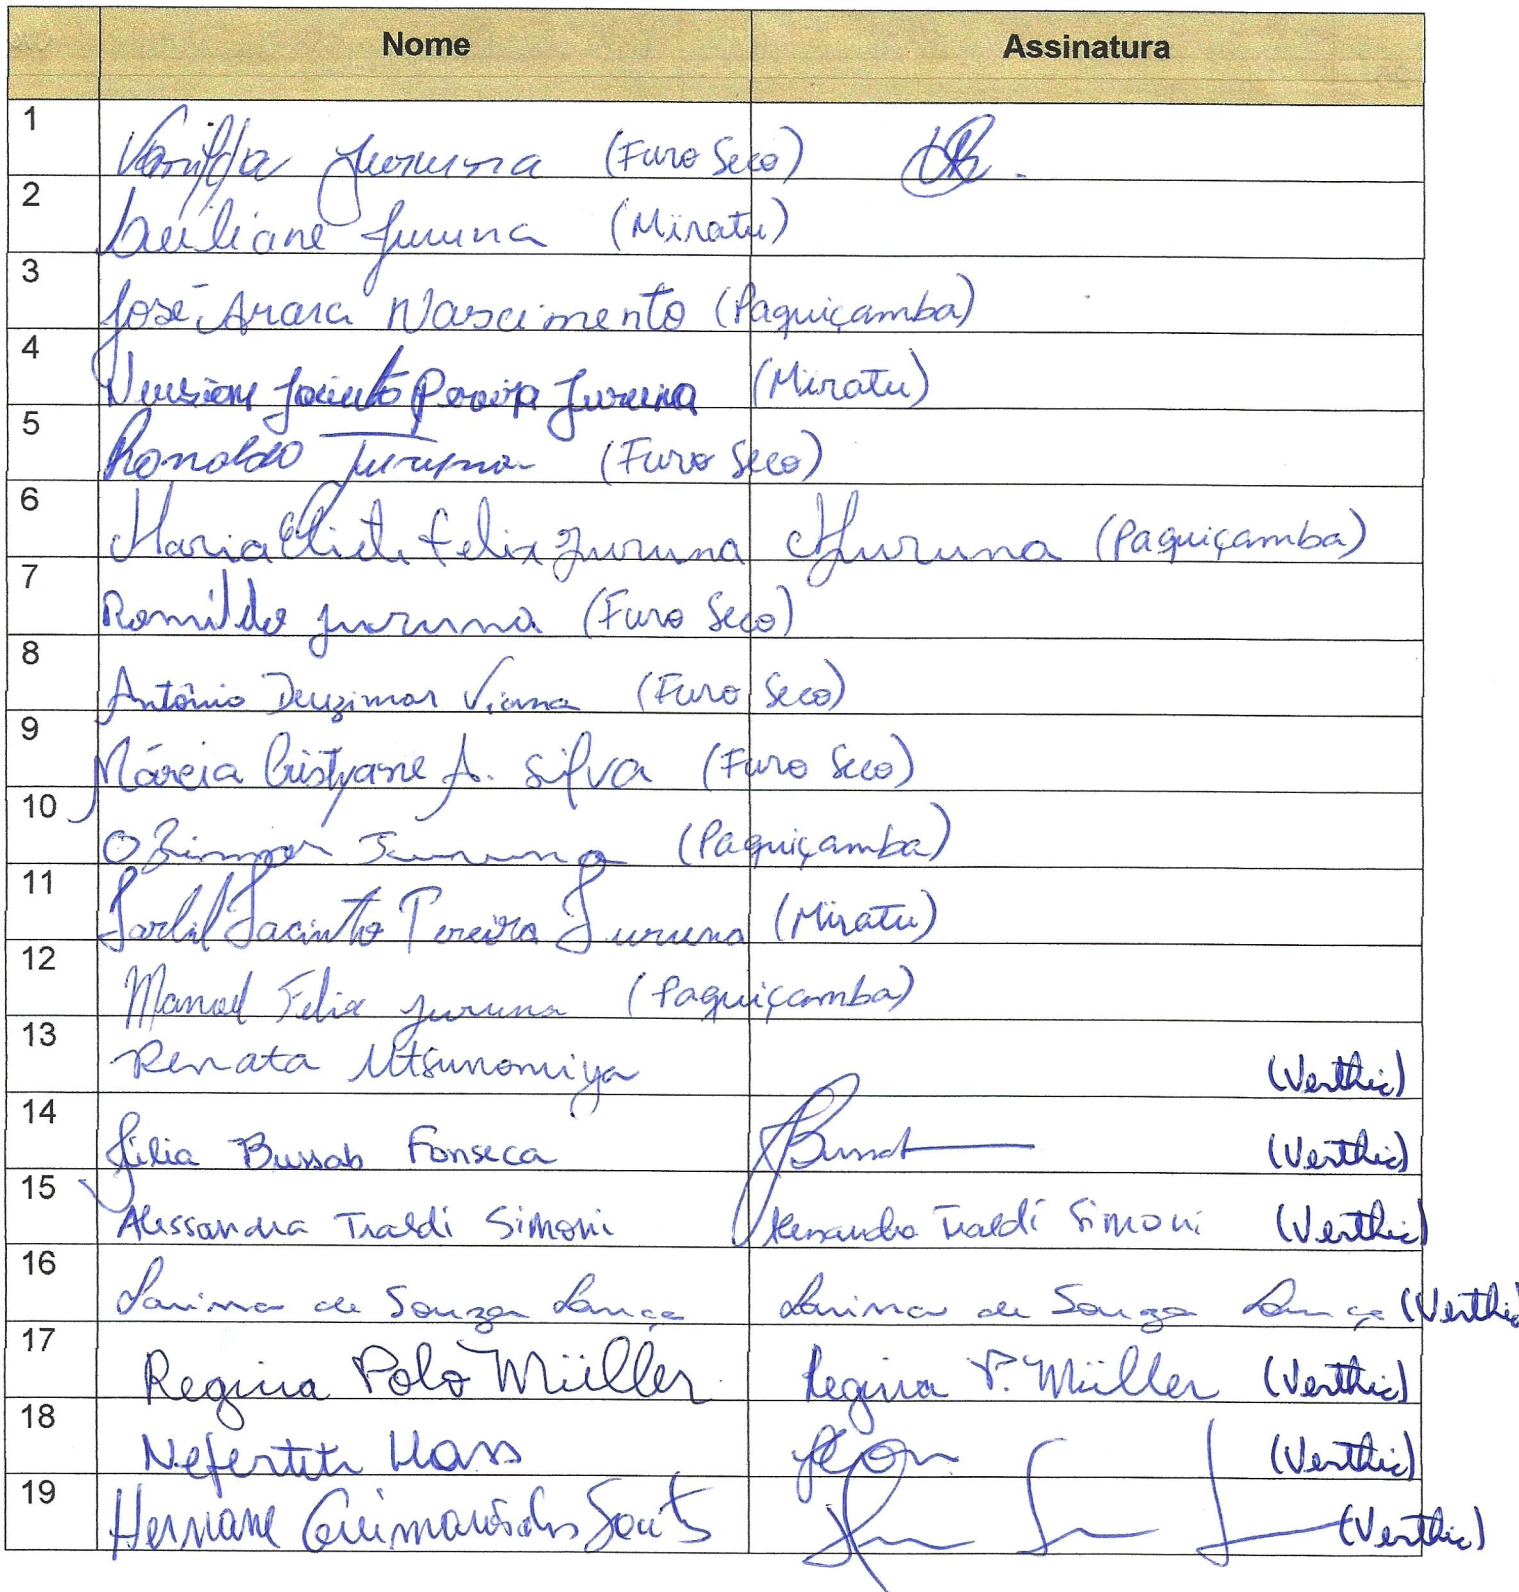 Nome Assinatura
1 Vanilda Juruna (Furo Seco)
2 Juruna (Miratu)
3 José Arara Nascimento (Paquiçamba)
4 Jacinto Pereira Juruna (Miratu)
5 Ronaldo Juruna (Furo Seco)
6 Maria Felix Juruna Juruna (Paquiçamba)
7 Romildo Juruna (Furo Seco)
8 Antônio Deuzimar Viana (Furo Seco)
9 Márcia Cristyane A. Silva (Furo Seco)
10 Ozimar Juruna (Paquiçamba)
11 Jacinto Pereira Juruna (Miratu)
12 Manoel Felix Juruna (Paquiçamba)
13 Renata Utsunomiya (Verthic)
14 Júlia Bussab Fonseca (Verthic)
15 Alessandra Traldi Simoni Alessandra Traldi Simoni (Verthic)
16 de Souza de Souza (Verthic)
17 Regina Polo Müller Regina P. Müller (Verthic)
18 Nefertiti (Verthic)
19 Hernane Guimarães dos (Verthic)